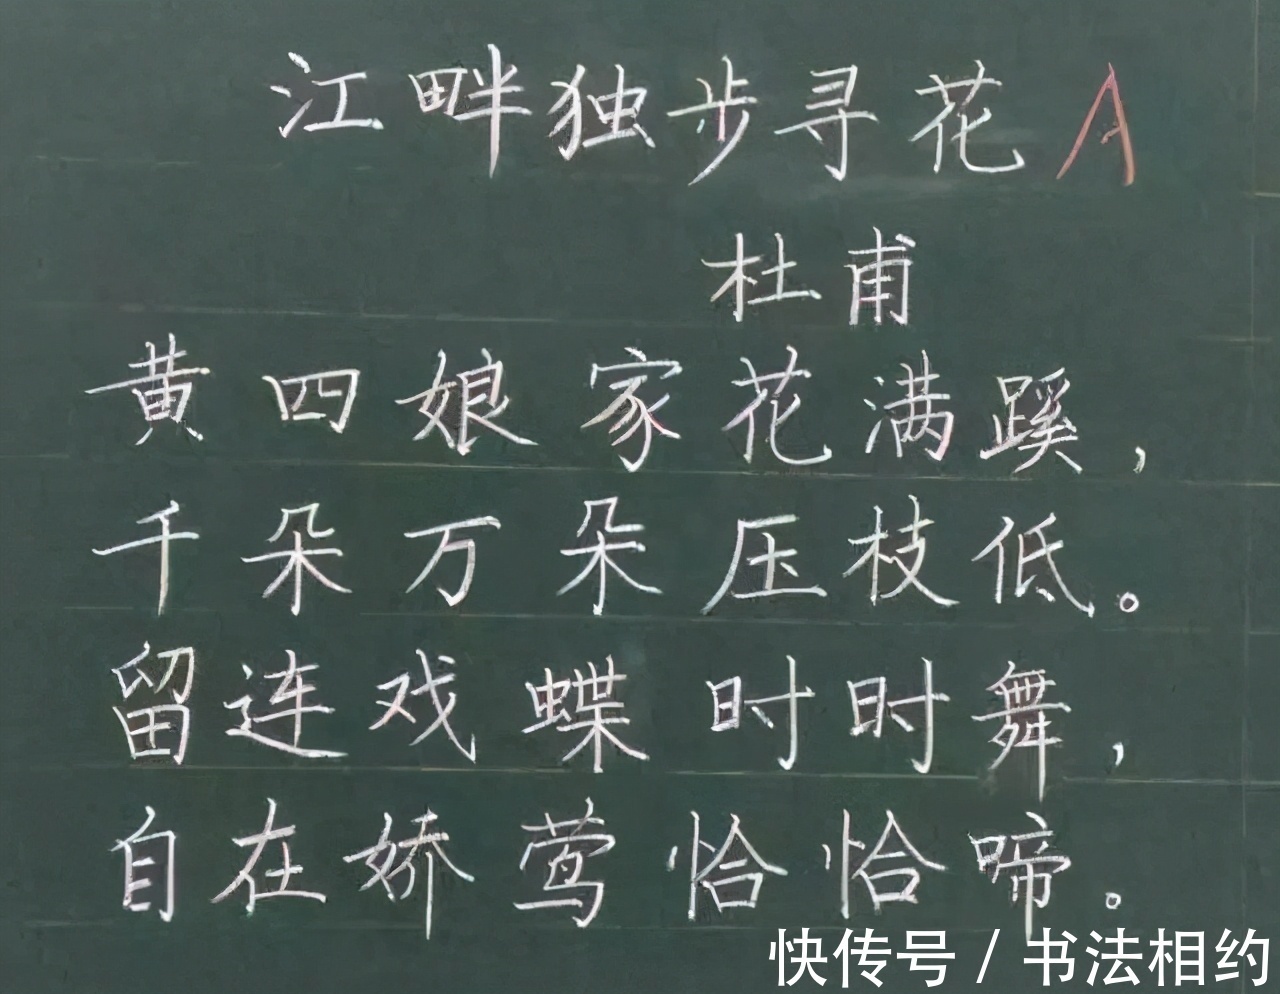 江畔独步寻花 A
杜甫
黄四娘家花满蹊，
千朵万朵压枝低。
留连戏蝶时时舞，
自在娇莺恰恰啼。
快传号 / 书法相约